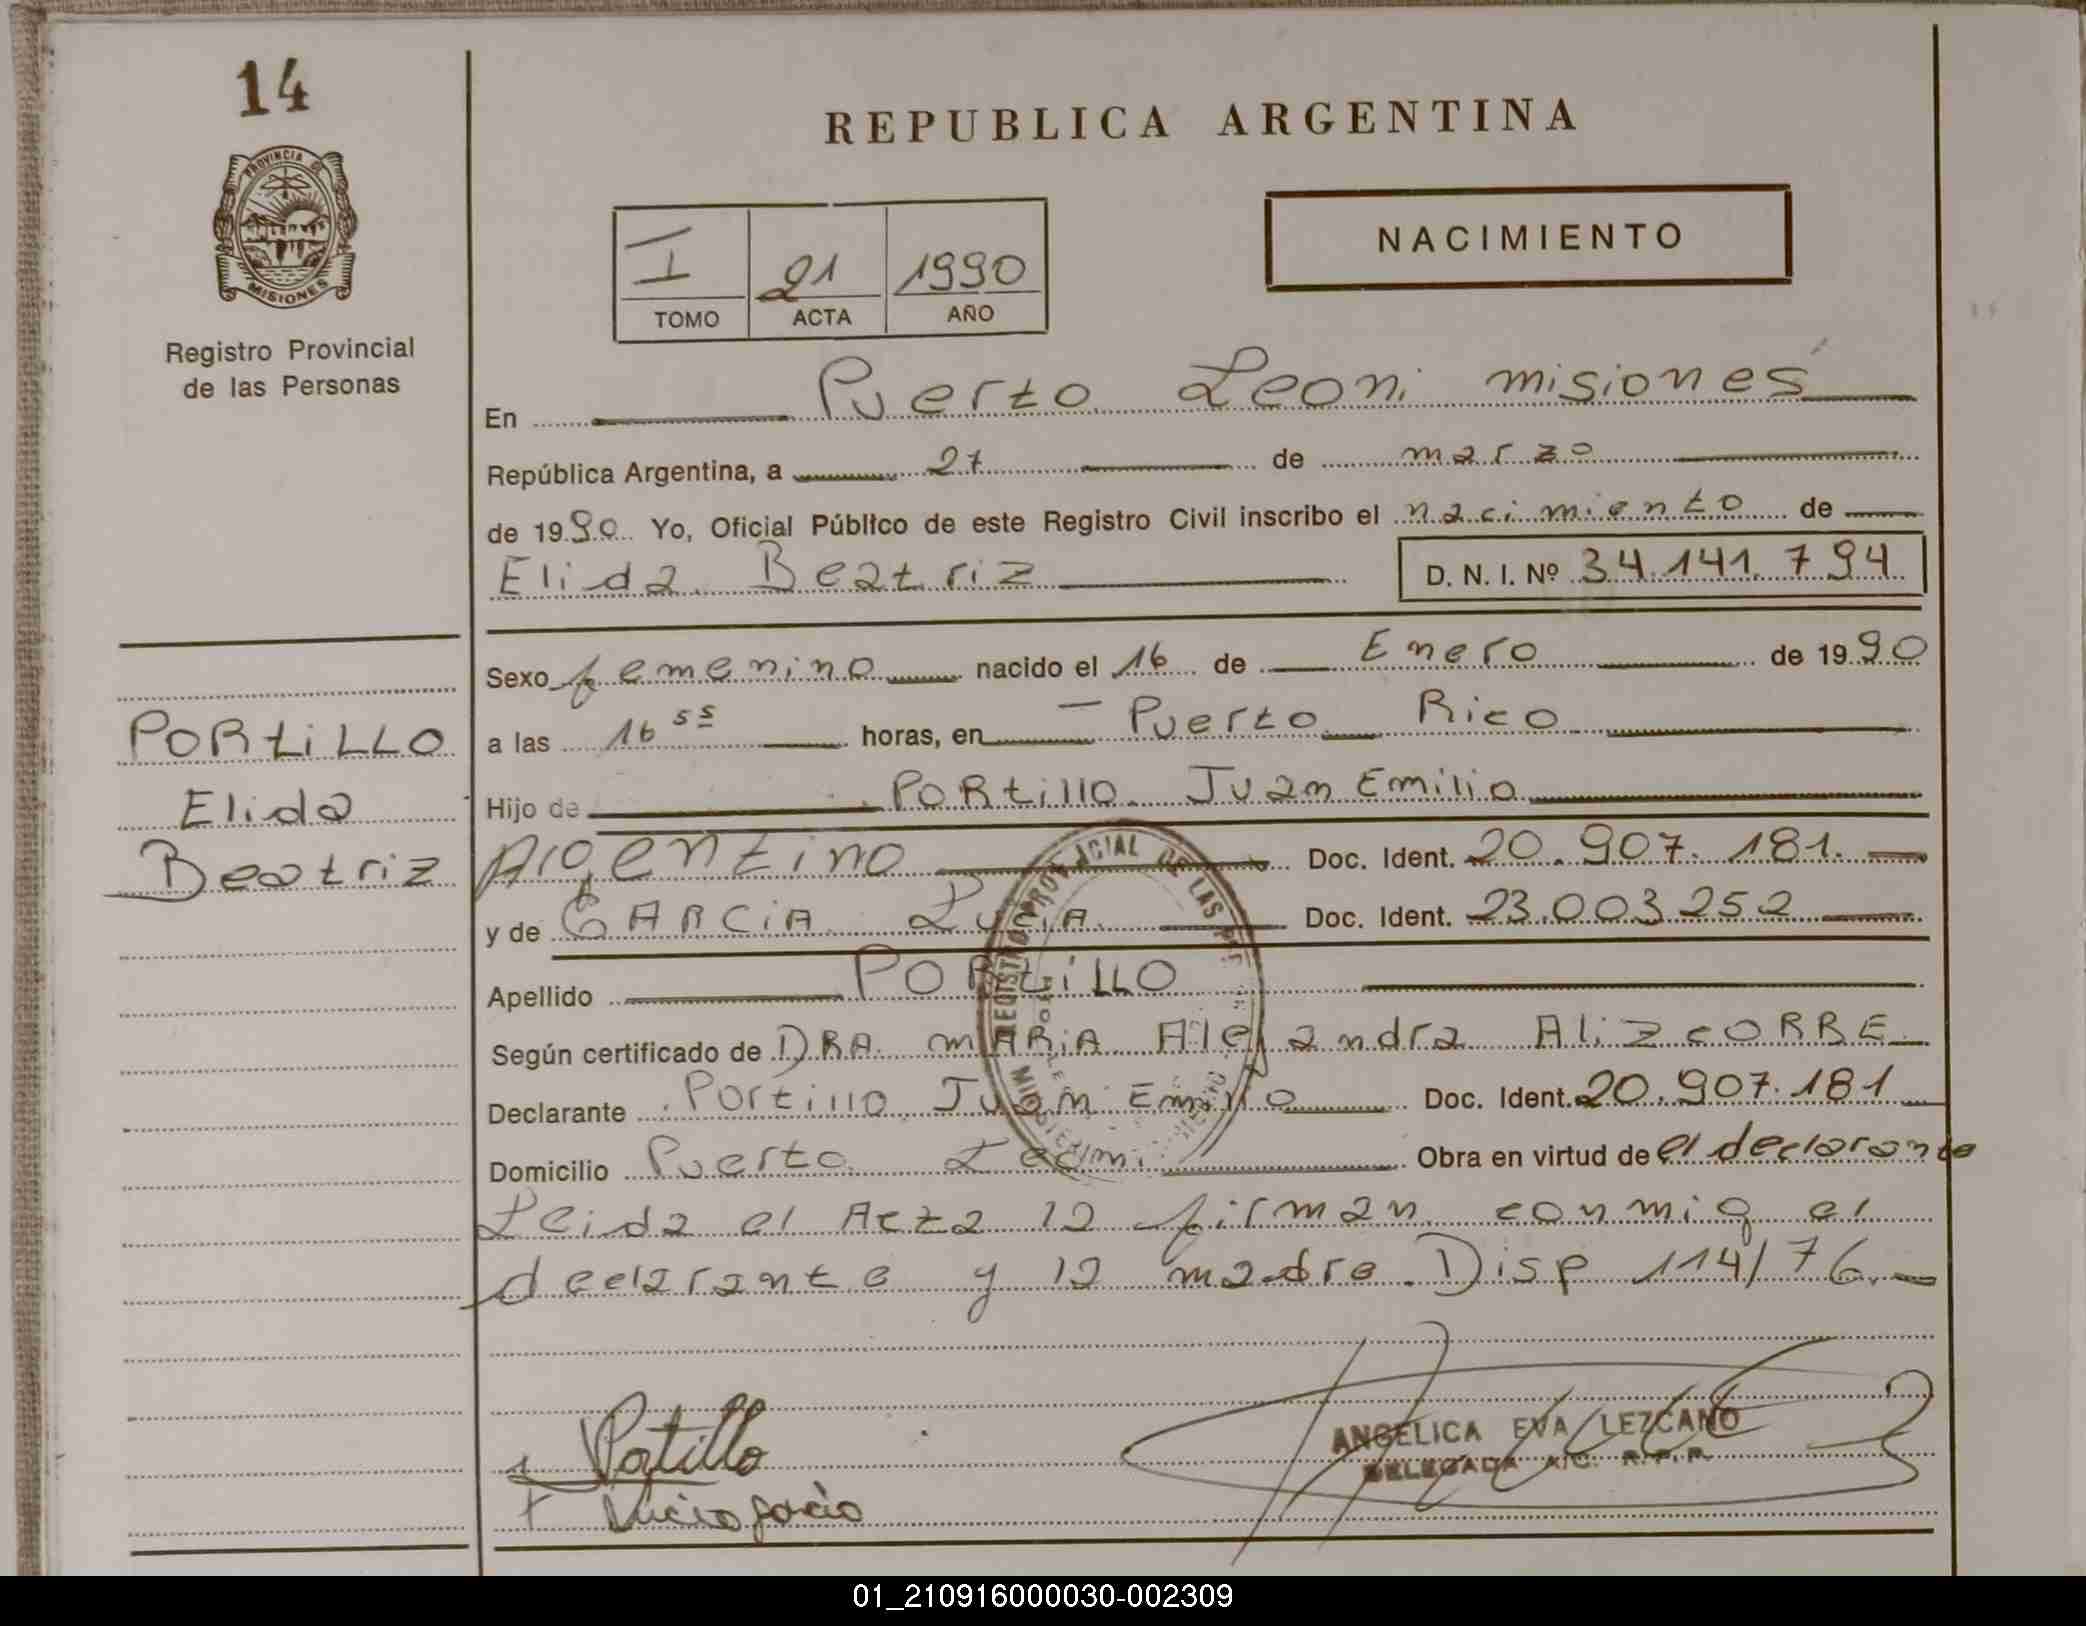 14
PROVINCIA DE
MISIONES
Registro Provincial
de las Personas
PORtiLLO
Elida
Beatriz
REPUBLICA ARGENTINA
I 21 1990
TOMO ACTA AÑO
NACIMIENTO
En Puerto Leoni misiones
República Argentina, a 27 de marzo
de 1990 Yo, Oficial Público de este Registro Civil inscribo el nacimiento de
Elida Beatriz D. N. I. Nº 34.141.794
Sexo femenino nacido el 16 de Enero de 1990
a las 16 55 horas, en Puerto Rico
Hijo de PORtillo Juan Emilio
Argentino Doc. Ident. 20.907.181.
y de GARCiA Lucia Doc. Ident. 23.003.252
Apellido PORtiLLO
Según certificado de DRA. mARiA Alejandra AlizCORBE
Declarante Portillo Juan Emilio Doc. Ident. 20.907.181
Domicilio Puerto Leoni Obra en virtud de el declarante
Leida el Acta la firman conmig el
declarante y la madre. Disp 114/76.
REGISTRO PROVINCIAL DE LAS
Portillo
Lucia garcia
ANGELICA EVA LEZCANO
DELEGADA A/C. R.P.P.
01_210916000030-002309